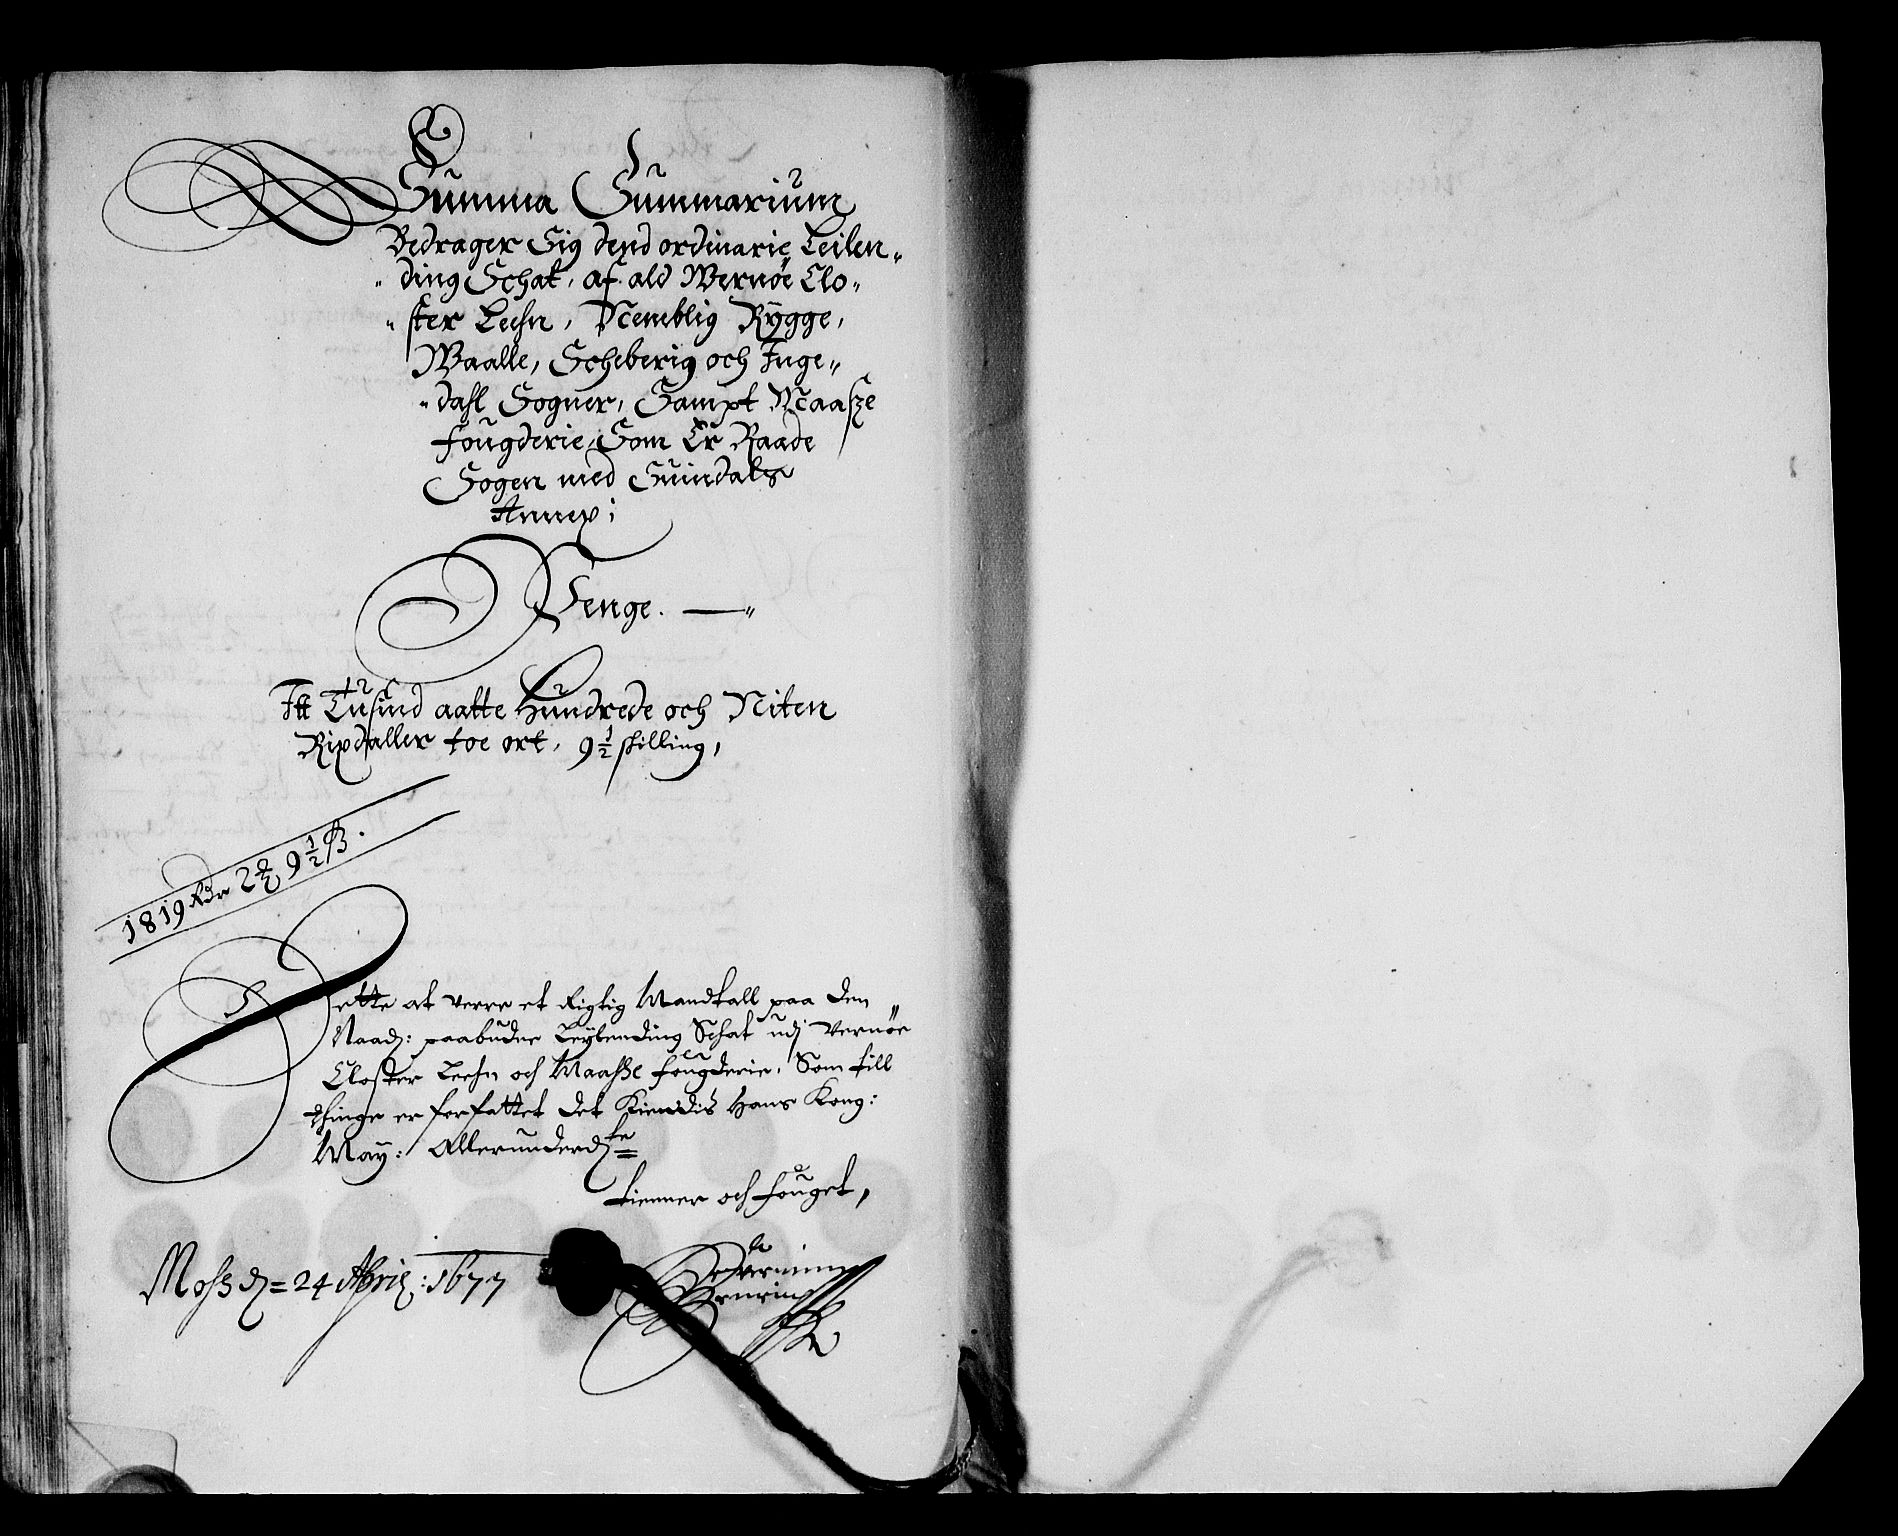 Summa Summarium
Bedrager Sig dend ordinarie Leilen„
„ding Schat, af ald Wernøe Clo„
„ster Leehn, Nemblig Rygge,
Waalle, Scheberig och Inge„
„dahl Sogner, Sampt Maasze
fougderie, Som Er Raade
Sogen med Suindals
Annex;
Penge. —„
Itt Tusind aatte Hundrede och Niten
Rixdaller toe ort, 9½ skilling,
1819 Rdr 2 9½ ß.
Dette at verre et Rigtig Mandtall paa den
Naad: paabudne Leylending Schat udj Vernøe
Closter Leehn och Maasße fougderie, Som till
thinge er forfattet det Kiendis Hans Kong:
May: Allerunderd=
tienner och fouget,
Moß d= 24 April: 1677